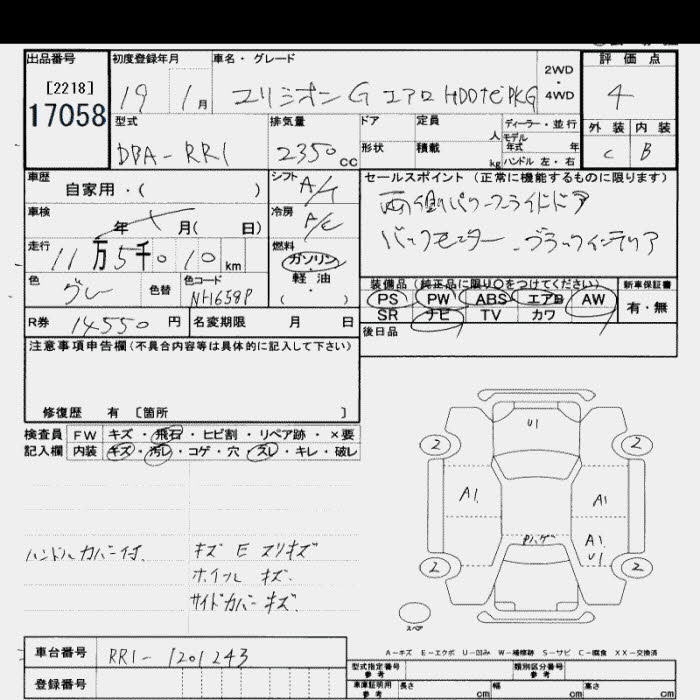 出品番号 初度登録年月 車名・グレード 評価点
[2218]
17058
19 1月 エリシオン G エアロ HDDナビPKG 2WD・4WD 4
型式 排気量 ドア 定員 人 ディーラー・並行 外装 内装
DBA-RR1 2350cc 形状 積載 kg モデル年式 年 ハンドル 左・右 C B
車歴 自家用・( ) シフト A/T セールスポイント (正常に機能するものに限ります)
車検 年 月( 日) 冷房 A/C 両側パワースライドドア
走行 11万5千010km 燃料 ガソリン・軽油・( ) バックモニター、ブラックインテリア
色 グレー 色替 色コード NH658P 装備品 (純正品に限り○をつけてください) 新車保証書
PS PW ABS エアB AW 有・無
SR ナビ TV カワ
R券 14550円 名変期限 月 日 後日品
注意事項申告欄(不具合内容等は具体的に記入して下さい)
修復歴 有 [箇所 ]
検査員 FW キズ・飛石・ヒビ割・リペア跡・×要
記入欄 内装 キズ・汚レ・コゲ・穴・スレ・キレ・破レ
U1
2 2
A1 A1
ハンドルカバー付 キズ E スリキズ
ホイル キズ
サイドカバーキズ
Pハゲ
A1
U1
2 2
スペア
A-キズ E-エクボ U-凹み W-補修跡 S-サビ C-腐食 XX-交換済
車台番号 RR1-1201243
型式指定番号 参考 類別区分番号 参考
登録番号
車庫証明用 参考 長さ cm 幅 cm 高さ cm